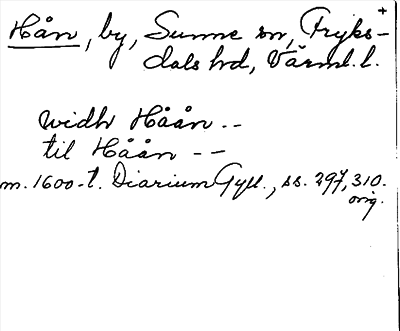 Hån, by, Sunne sn, Fryks- +
dals hd, Värml. l.
widh Håån --
til Håån --
m. 1600-t. Diarium Gyll., ss. 297, 310.
orig.